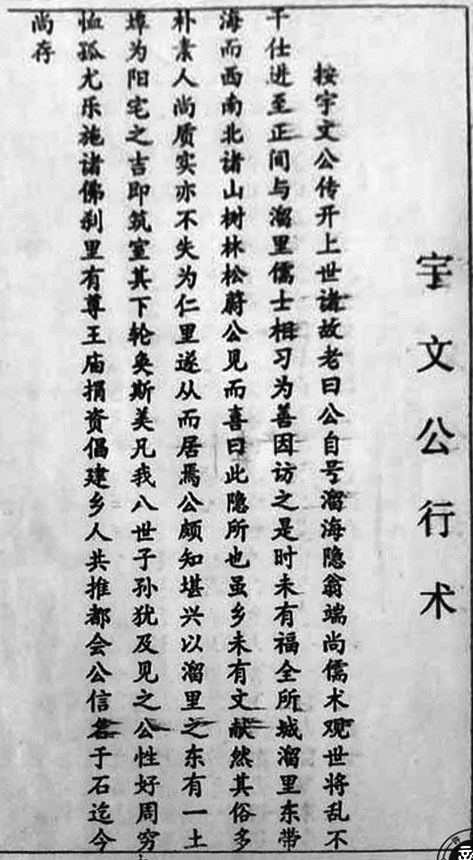 宇文公行术
按宇文公传开上世诸故老曰公自号溜海隐翁端尚儒术观世将乱不
干仕进至正间与溜里儒士相习为善因访之是时未有福全所城溜里东带
海而西南北诸山树林松蔚公见而喜曰此隐所也虽乡未有文献然其俗多
朴素人尚质实亦不失为仁里遂从而居焉公颇知堪兴以溜里之东有一土
埠为阳宅之吉即筑室其下轮奂斯美凡我八世子孙犹及见之公性好周穷
恤孤尤乐施诸佛刹里有尊王庙捐资倡建乡人共推都会公信名于石迄今
尚存